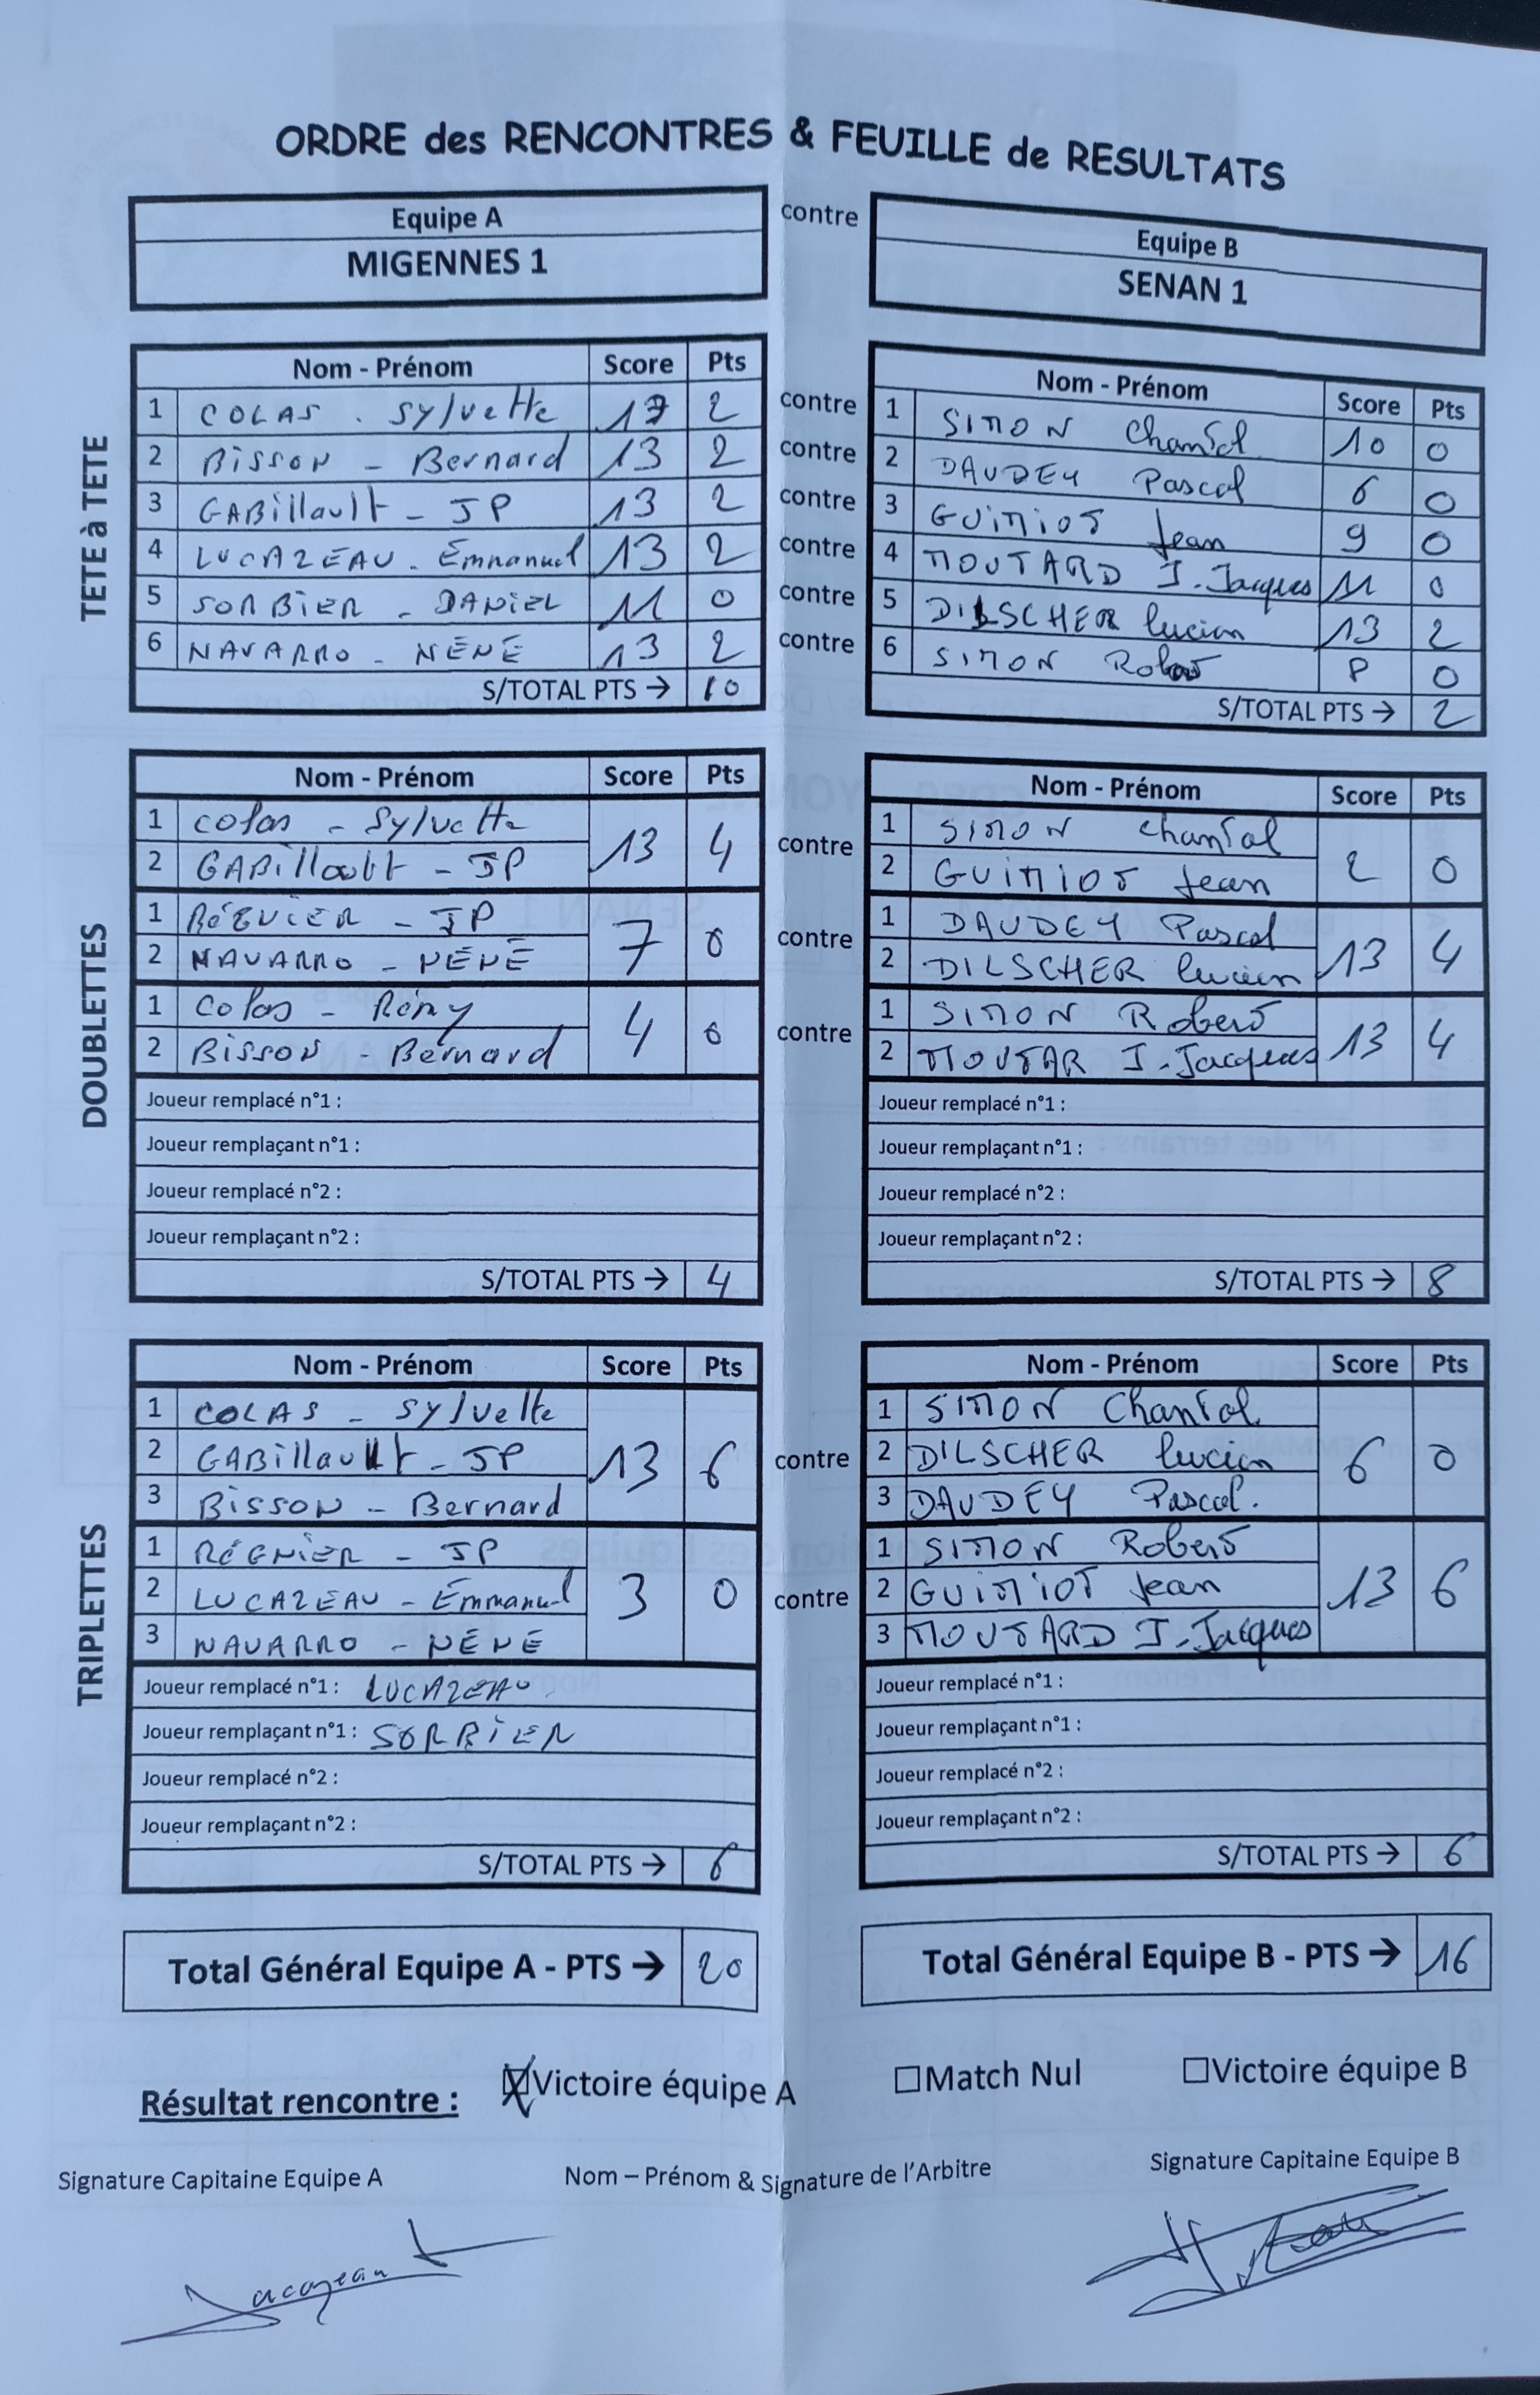 ORDRE des RENCONTRES & FEUILLE de RESULTATS
Equipe A contre Equipe B
MIGENNES 1 SENAN 1
TETE à TETE
Nom - Prénom Score Pts Nom - Prénom Score Pts
1 COLAS . Sylvette 13 2 contre 1 SIMON Chantal 10 0
2 BissoN - Bernard 13 2 contre 2 DAUDEY Pascal 6 0
3 GABillault - JP 13 2 contre 3 GUIMIOT Jean 9 0
4 LUCAZEAU - Emmanuel 13 2 contre 4 MOUTARD J.Jacques 11 0
5 SORBIER - DANIEL 11 0 contre 5 DILSCHER lucien 13 2
6 NAVARRO - NÉNÉ 13 2 contre 6 SIMON Robert 8 0
S/TOTAL PTS → 10 S/TOTAL PTS → 2
DOUBLETTES
Nom - Prénom Score Pts Nom - Prénom Score Pts
1 Colas - Sylvette 13 4 contre 1 SIMON Chantal 2 0
2 GABillault - JP 2 GUIMIOT Jean
1 RÉGNIER - JP 7 0 contre 1 DAUDEY Pascal 13 4
2 NAVARRO - NÉNÉ 2 DILSCHER lucien
1 Colas - Rémy 4 0 contre 1 SIMON Robert 13 4
2 BissoN - Bernard 2 MOUTAR J.Jacques
Joueur remplacé n°1 : Joueur remplacé n°1 :
Joueur remplaçant n°1 : Joueur remplaçant n°1 :
Joueur remplacé n°2 : Joueur remplacé n°2 :
Joueur remplaçant n°2 : Joueur remplaçant n°2 :
S/TOTAL PTS → 4 S/TOTAL PTS → 8
TRIPLETTES
Nom - Prénom Score Pts Nom - Prénom Score Pts
1 COLAS - Sylvette 1 SIMON Chantal
2 GABillault - JP 13 6 contre 2 DILSCHER lucien 6 0
3 BissoN - Bernard 3 DAUDEY Pascal.
1 RÉGNIER - JP 1 SIMON Robert
2 LUCAZEAU - Emmanuel 3 0 contre 2 GUIMIOT Jean 13 6
3 NAVARRO - NÉNÉ 3 MOUTARD J-Jacques
Joueur remplacé n°1 : LUCAZEAU Joueur remplacé n°1 :
Joueur remplaçant n°1 : SORBIER Joueur remplaçant n°1 :
Joueur remplacé n°2 : Joueur remplacé n°2 :
Joueur remplaçant n°2 : Joueur remplaçant n°2 :
S/TOTAL PTS → 6 S/TOTAL PTS → 6
Total Général Equipe A - PTS → 20 Total Général Equipe B - PTS → 16
Résultat rencontre : ☒Victoire équipe A ☐Match Nul ☐Victoire équipe B
Signature Capitaine Equipe A Nom – Prénom & Signature de l'Arbitre Signature Capitaine Equipe B